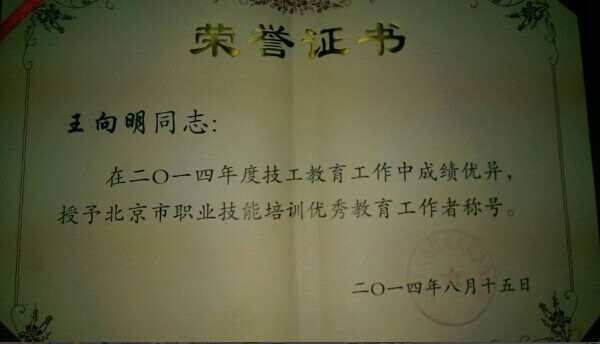 荣誉证书
王向明同志:
在二〇一四年度技工教育工作中成绩优异,
授予北京市职业技能培训优秀教育工作者称号。
二〇一四年八月十五日